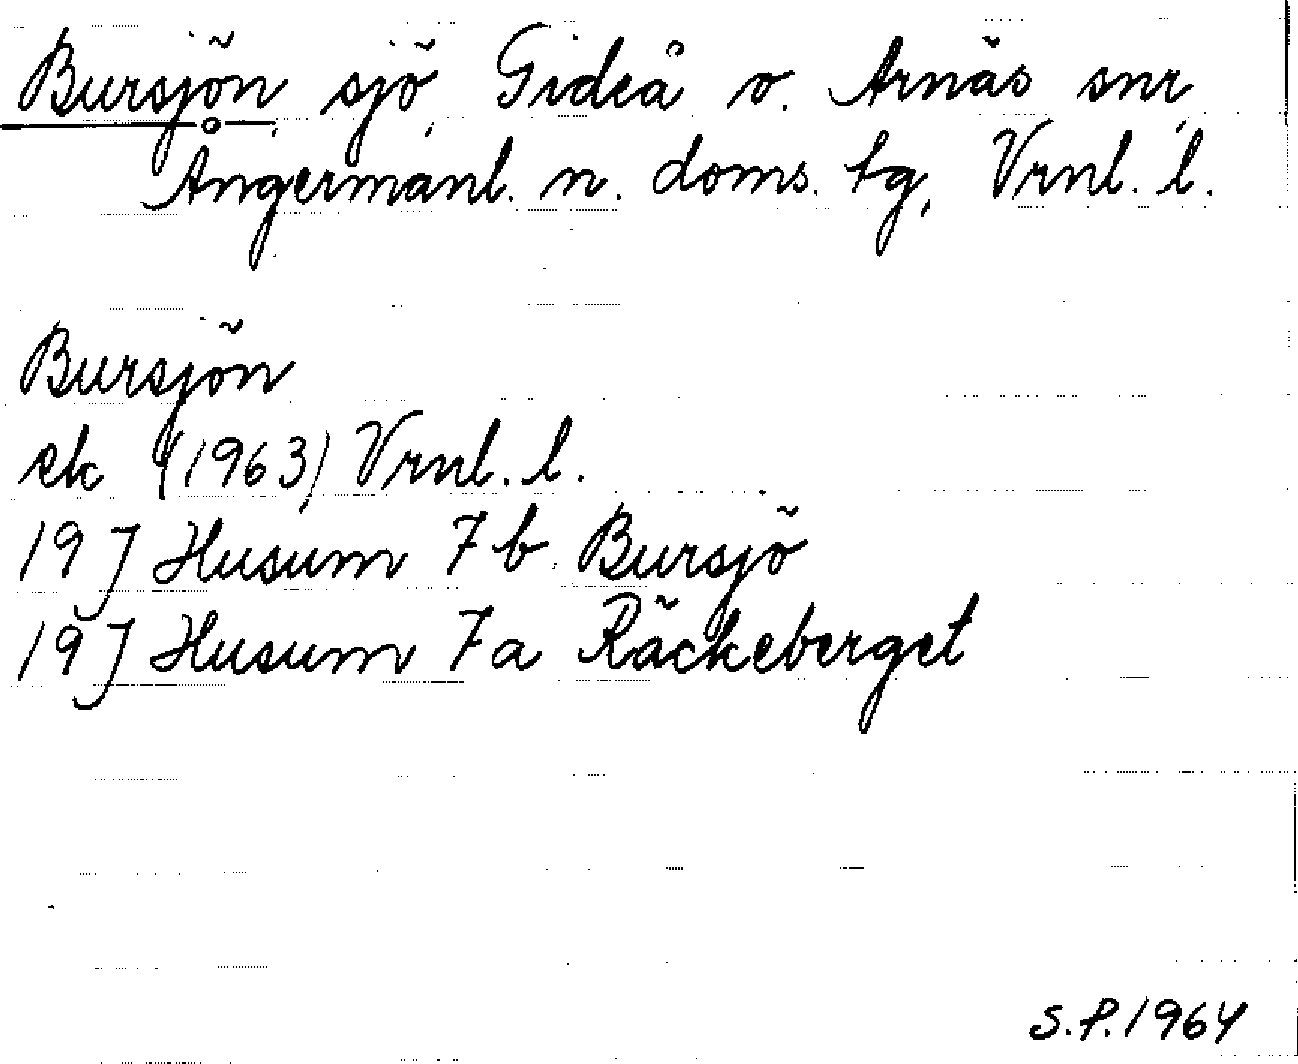 Bursjön, sjö, Gideå o. Arnäs snr,
Ångermanl. n. doms. tg, Vrnl. l.
Bursjön
ek (1963) Vrnl. l.
19 J Husum 7 b Bursjö
19 J Husum 7 a Räckeberget
S.P. 1964